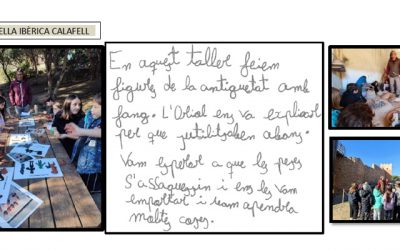 ELLA IBÈRICA CALAFELL
En aquest taller feiem
figures de la antiguetat amb
fang. L'Oriol ens va explicar
per que jutilitzaben abans.
Vam esperar a que les peces
s'assaquessin i ens les vam
emportar i vam apendra
moltes coses.